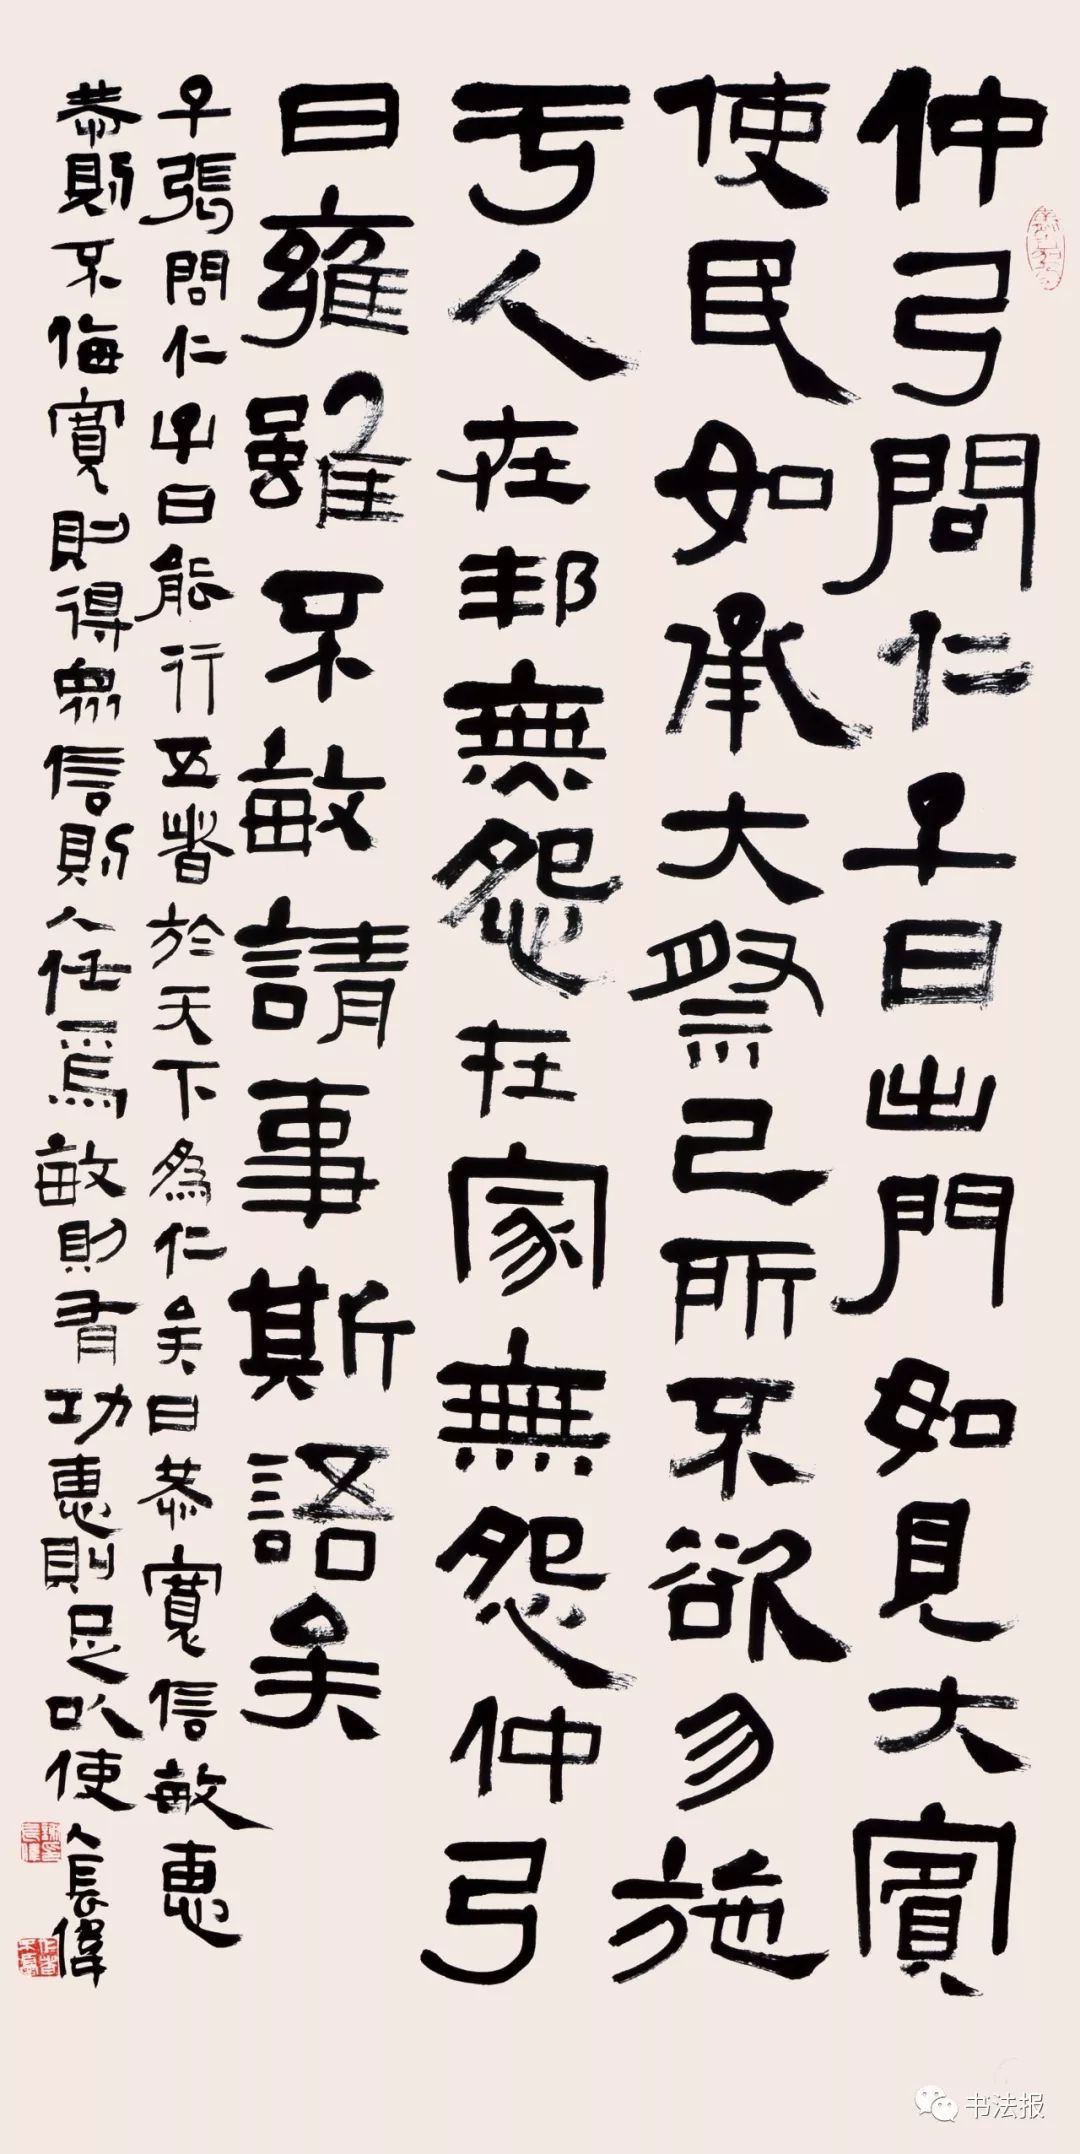 仲弓問仁子曰出門如見大賓
使民如承大祭己所不欲勿施
于人在邦無怨在家無怨仲弓
曰雍雖不敏請事斯語矣
子張問仁子曰能行五者於天下為仁矣曰恭寬信敏惠
恭則不侮寬則得眾信則人任焉敏則有功惠則足以使人長偉
书法报